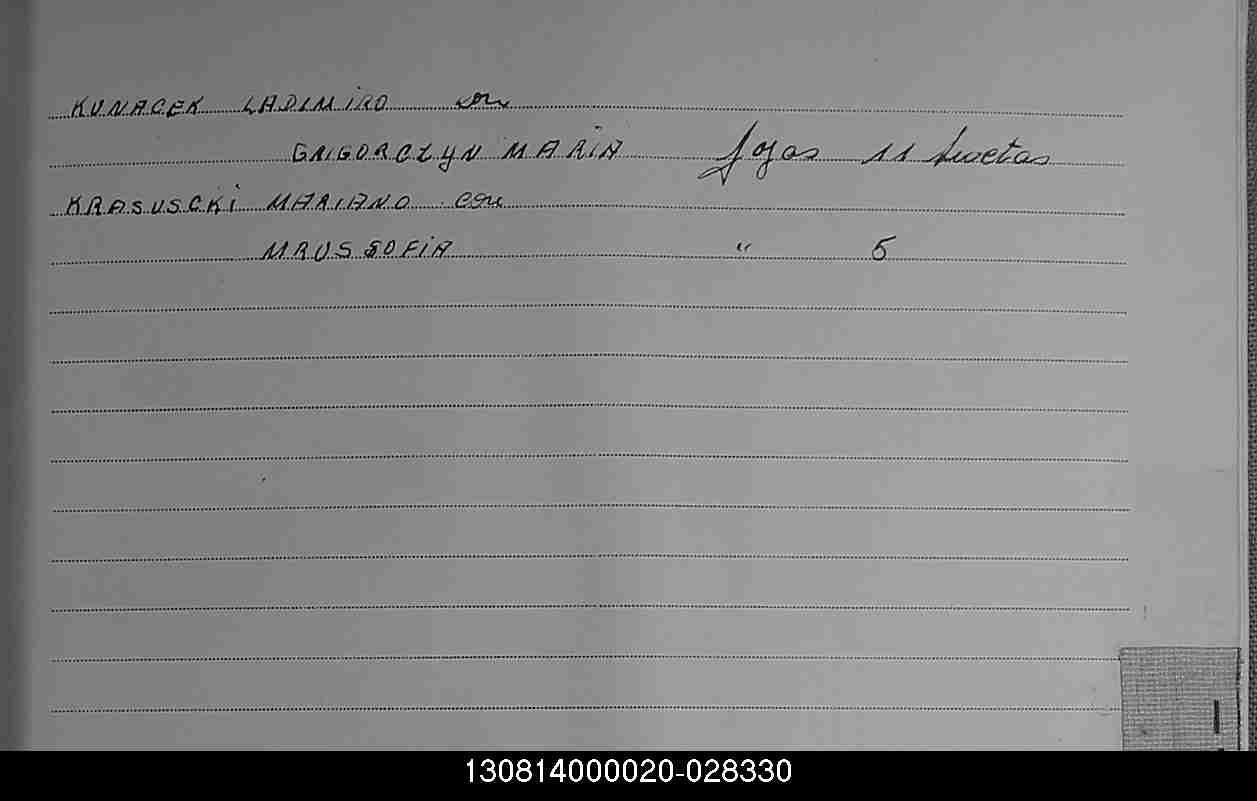 KUNACEK LADIMIRO con
GRIGORCZYN MARIA fojas 11 buetas
KRASUSCKI MARIANO con
MRUS SOFIA " 5
130814000020-028330